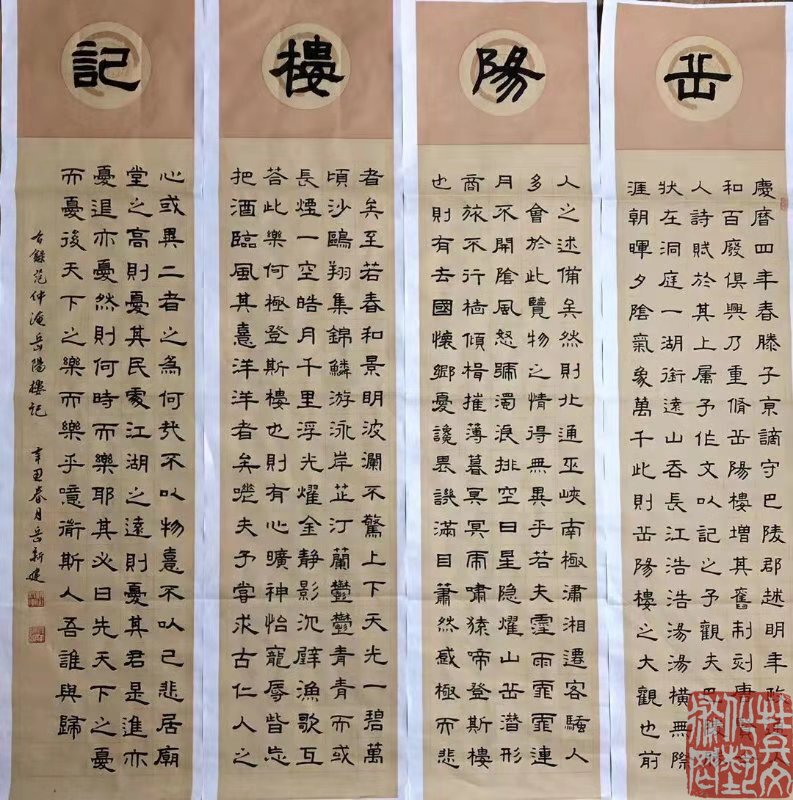 岳
慶曆四年春滕子京謫守巴陵郡越明年人
和百廢俱興乃重脩岳陽樓增其舊制刻唐
人詩賦於其上屬予作文以記之予觀夫
狀在洞庭一湖銜遠山吞長江浩浩湯湯橫無際
涯朝暉夕陰氣象萬千此則岳陽樓之大觀也前
陽
人之述備矣然則北通巫峽南極瀟湘遷客騷人
多會於此覽物之情得無異乎若夫霪雨霏霏連
月不開陰風怒號濁浪排空日星隱耀山岳潛形
商旅不行檣傾楫摧薄暮冥冥雨嘯猿啼登斯樓
也則有去國懷鄉憂讒畏譏滿目蕭然感極而悲
樓
者矣至若春和景明波瀾不驚上下天光一碧萬
頃沙鷗翔集錦鱗游泳岸芷汀蘭鬱鬱青青而或
長煙一空皓月千里浮光耀金靜影沉璧漁歌互
答此樂何極登斯樓也則有心曠神怡寵辱皆忘
把酒臨風其喜洋洋者矣嗟夫予嘗求古仁人之
記
心或異二者之為何哉不以物喜不以己悲居廟
堂之高則憂其民處江湖之遠則憂其君是進亦
憂退亦憂然則何時而樂耶其必曰先天下之憂
而憂後天下之樂而樂乎噫微斯人吾誰與歸
右錄范仲淹岳陽樓記 辛丑春月岳新建